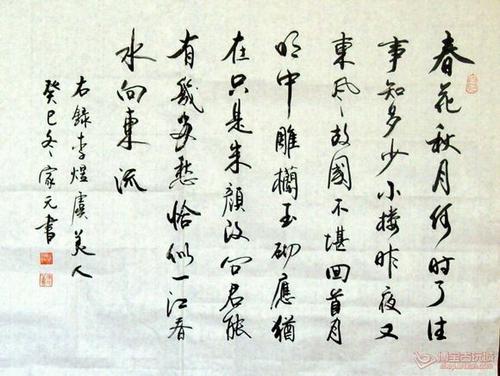 春花秋月何时了往
事知多少小楼昨夜又
東风故國不堪回首月
明中雕欄玉砌應猶
在只是朱顔改问君能
有幾多愁恰似一江春
水向東流
右録李煜虞美人
癸巳冬家元書